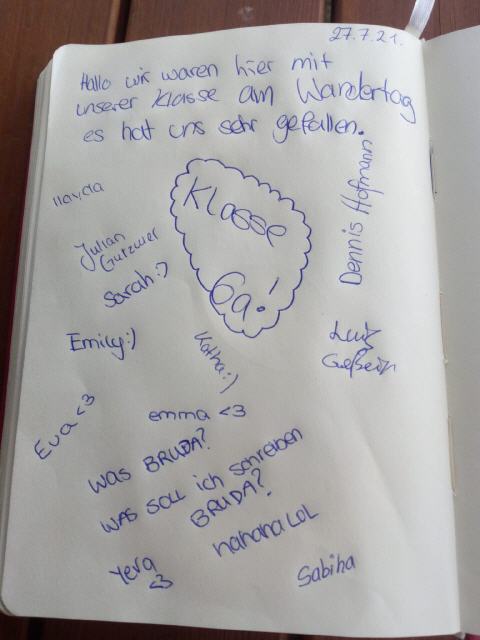 27.7.21.
Hallo wir waren hier mit
unserer Klasse am Wandertag
es hat uns sehr gefallen.
Ilayda
Klasse
6a.!
Dennis Hofmann
Julian
Gutzwer
Sarah:)
Emily:)
Katha:)
Luis
Eva <3
emma <3
WAS BRUDA?
WAS SOLL ich schreiben
BRUDA?
hahahaLOL
Yera
<3
Sabiha